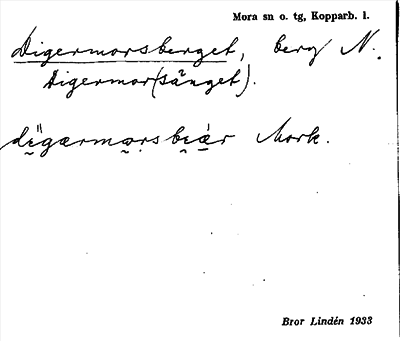 Mora sn o. tg, Kopparb. l.
Digermorsberget, berg N.
Digermor(sänget).
dḭ̈gærmo̰rsbḛǽr Mork.
Bror Lindén 1933